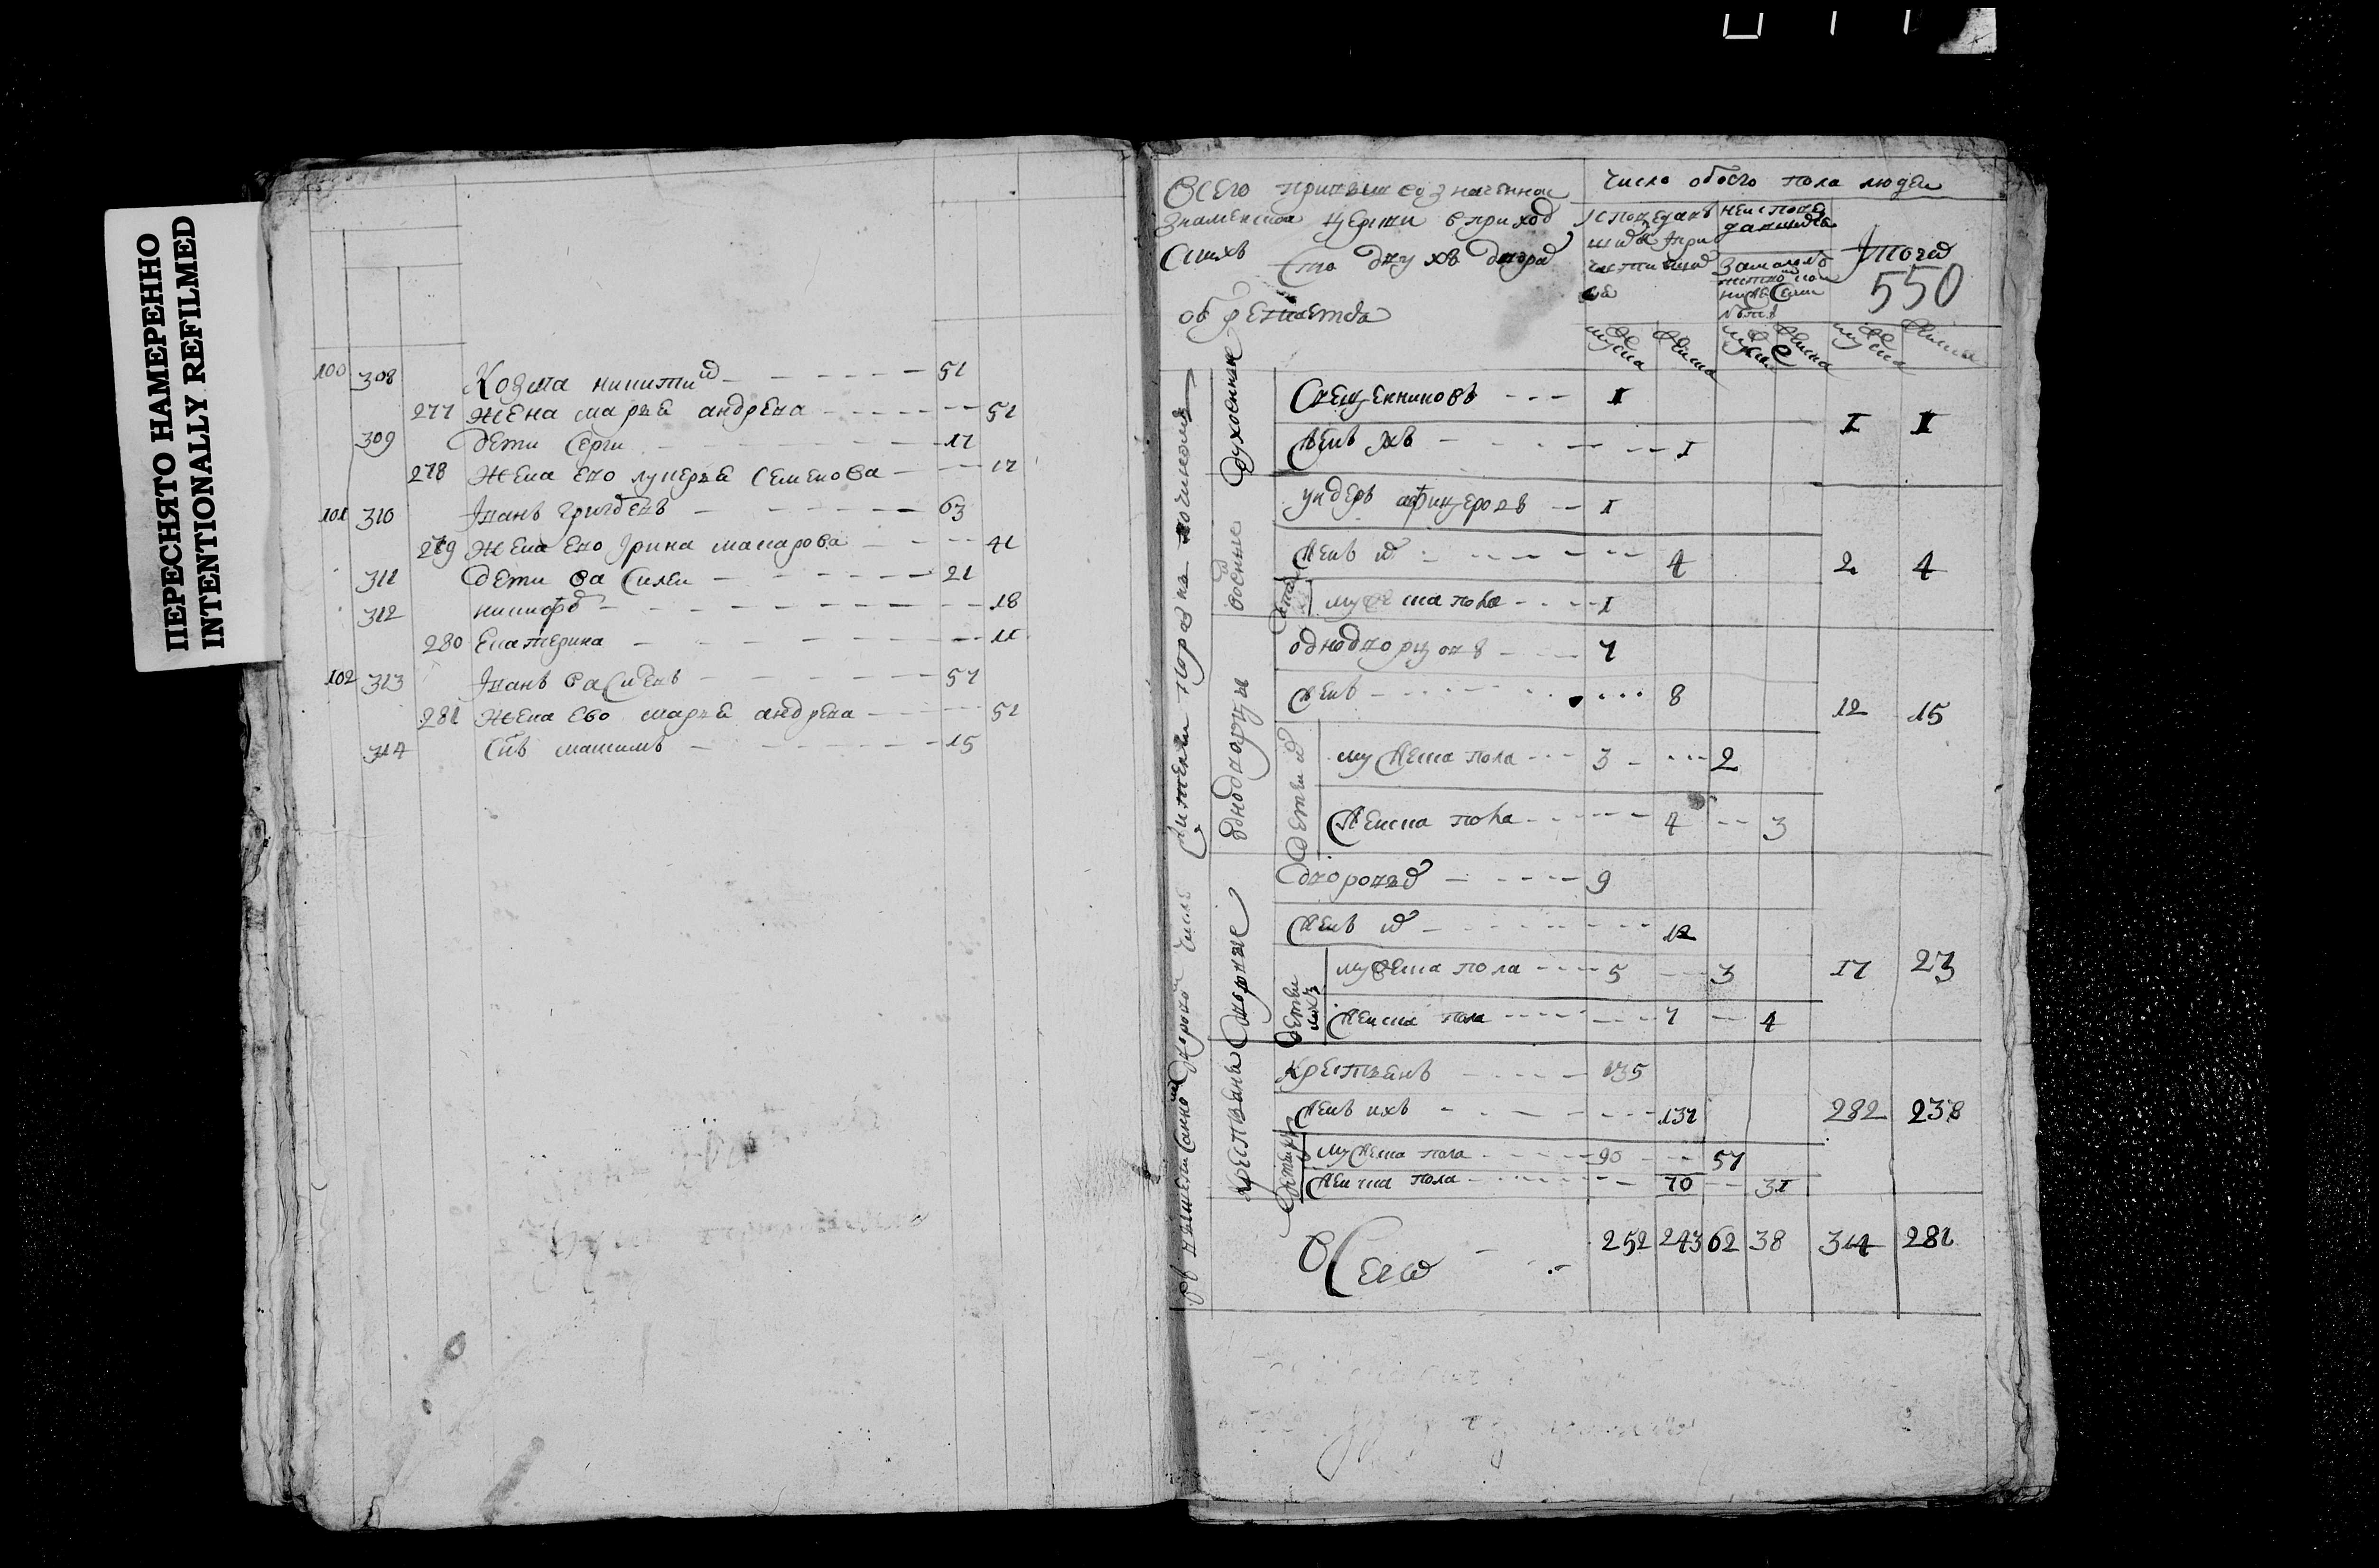 ПЕРЕСНЯТО НАМЕРЕННО
INTENTIONALLY REFILMED
100 308 Козма никитин 51
277 жена марья андрева 51
309 дети Серги 17
278 жена ево лукерья Семенова 17
101 310 Iванъ григоревъ 63
279 жена ево Iрина макарова 41
311 дети василеи 21
312 никифоръ 18
280 Екатерина 11
102 313 Iванъ василевъ 57
281 жена ево марья андрева 51
314 Снъ максимъ 15
Всего при вышеозначенной
знаменской церкви в приход
Скихъ Сто двухъ дворах
обретается
число обоего пола людеи
Iтого
550
мужеска женска мужеска женска мужеска женска
духовные
Священниковъ 1
женъ ихъ 1
1 1
военные
ундеръ афицеровъ 1
женъ их 4
мужеска пола 1
2 4
однодворцы
однодворцовъ 7
женъ 8
дети их
мужеска пола 3 2
женска пола 4 3
12 15
дворовые
дворовых 9
женъ их 12
дети ихъ
мужеска пола 5 3
женска пола 7 4
17 23
крестьяне
крестьянъ 135
женъ ихъ 137
мужеска пола 90 57
женска пола 70 31
282 238
Всего 252 243 62 38 314 281